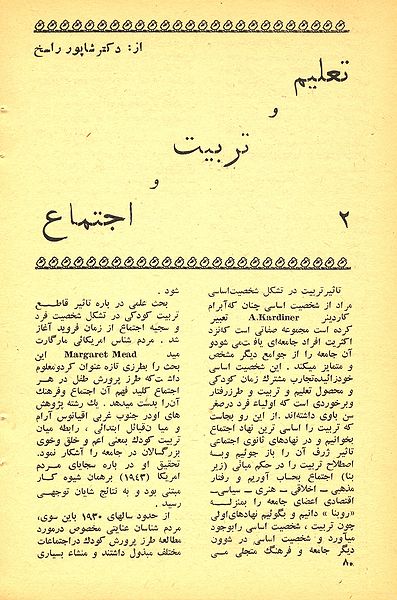 از: دکتر شاپور راسخ
تعلیم
و
تربیت
و
اجتماع
۲
تاثیر تربیت در تشکل شخصیت اساسی
مراد از شخصیت اساسی چنان که آبرام
کاردینر A.Kardiner تعبیر
کرده است مجموعه صفاتی است که نزد
اکثریت افراد جامعه‌ای یافت می شود و
آن جامعه را از جوامع دیگر مشخص
و متمایز میکند . این شخصیت اساسی
خود زائیده تجارب مشترك زمان کودکی
و محصول تعلیم و تربیت و طرز رفتار
و برخوردی است که اولیاء فرد در صغر
سن باوی داشته‌اند . از این رو بجاست
که تربیت را اساسی ترین نهاد اجتماع
بخوانیم و در نهادهای ثانوی اجتماعی
تاثیر ژرف آن را باز جوئیم و به
اصطلاح تربیت را در حکم مبانی (زیر
بنا) اجتماع بحساب آوریم و رفتار
مذهبی ـ اخلاقی ـ هنری ـ سیاسی ـ
اقتصادی اعضای جامعه را بمنزله
«روبنا» دانیم و بگوئیم نهادهای اولی
چون تربیت ، شخصیت اساسی را بوجود
میآورد و شخصیت اساسی در شوون
دیگر جامعه و فرهنگ متجلی می
شود .
بحث علمی در باره تاثیر قاطع
تربیت کودکی در تشکل شخصیت فرد
و سجیه اجتماع از زمان فروید آغاز
شد . مردم شناس امریکائی مارگارت
مید Margaret Mead این
بحث را بطرزی تازه عنوان کرد و معلوم
داشت که طرز پرورش طفل در هر
اجتماع کلید فهم آن اجتماع و فرهنگ
آن را بدست میدهد . یك رشته پژوهش
های او در جنوب غربی اقیانوس آرام
و میا ن قبائل ابتدائی ، رابطه میان
تربیت کودك بمعنی اعم و خلق و خوی
بزرگسالان در جامعه را آشکار نمود .
تحقیق او در باره سجایای مردم
امریکا (۱۹۴۳) بر همان شیوه کار
مبتنی بود و به نتائج شایان توجهی
رسید .
از حدود سالهای ۱۹۳۰ باین سوی ،
مردم شناسان عنایتی مخصوص در مورد
مطالعه طرز پرورش کودك در اجتماعات
مختلف مبذول داشتند و منشاء بسیاری
۸۰